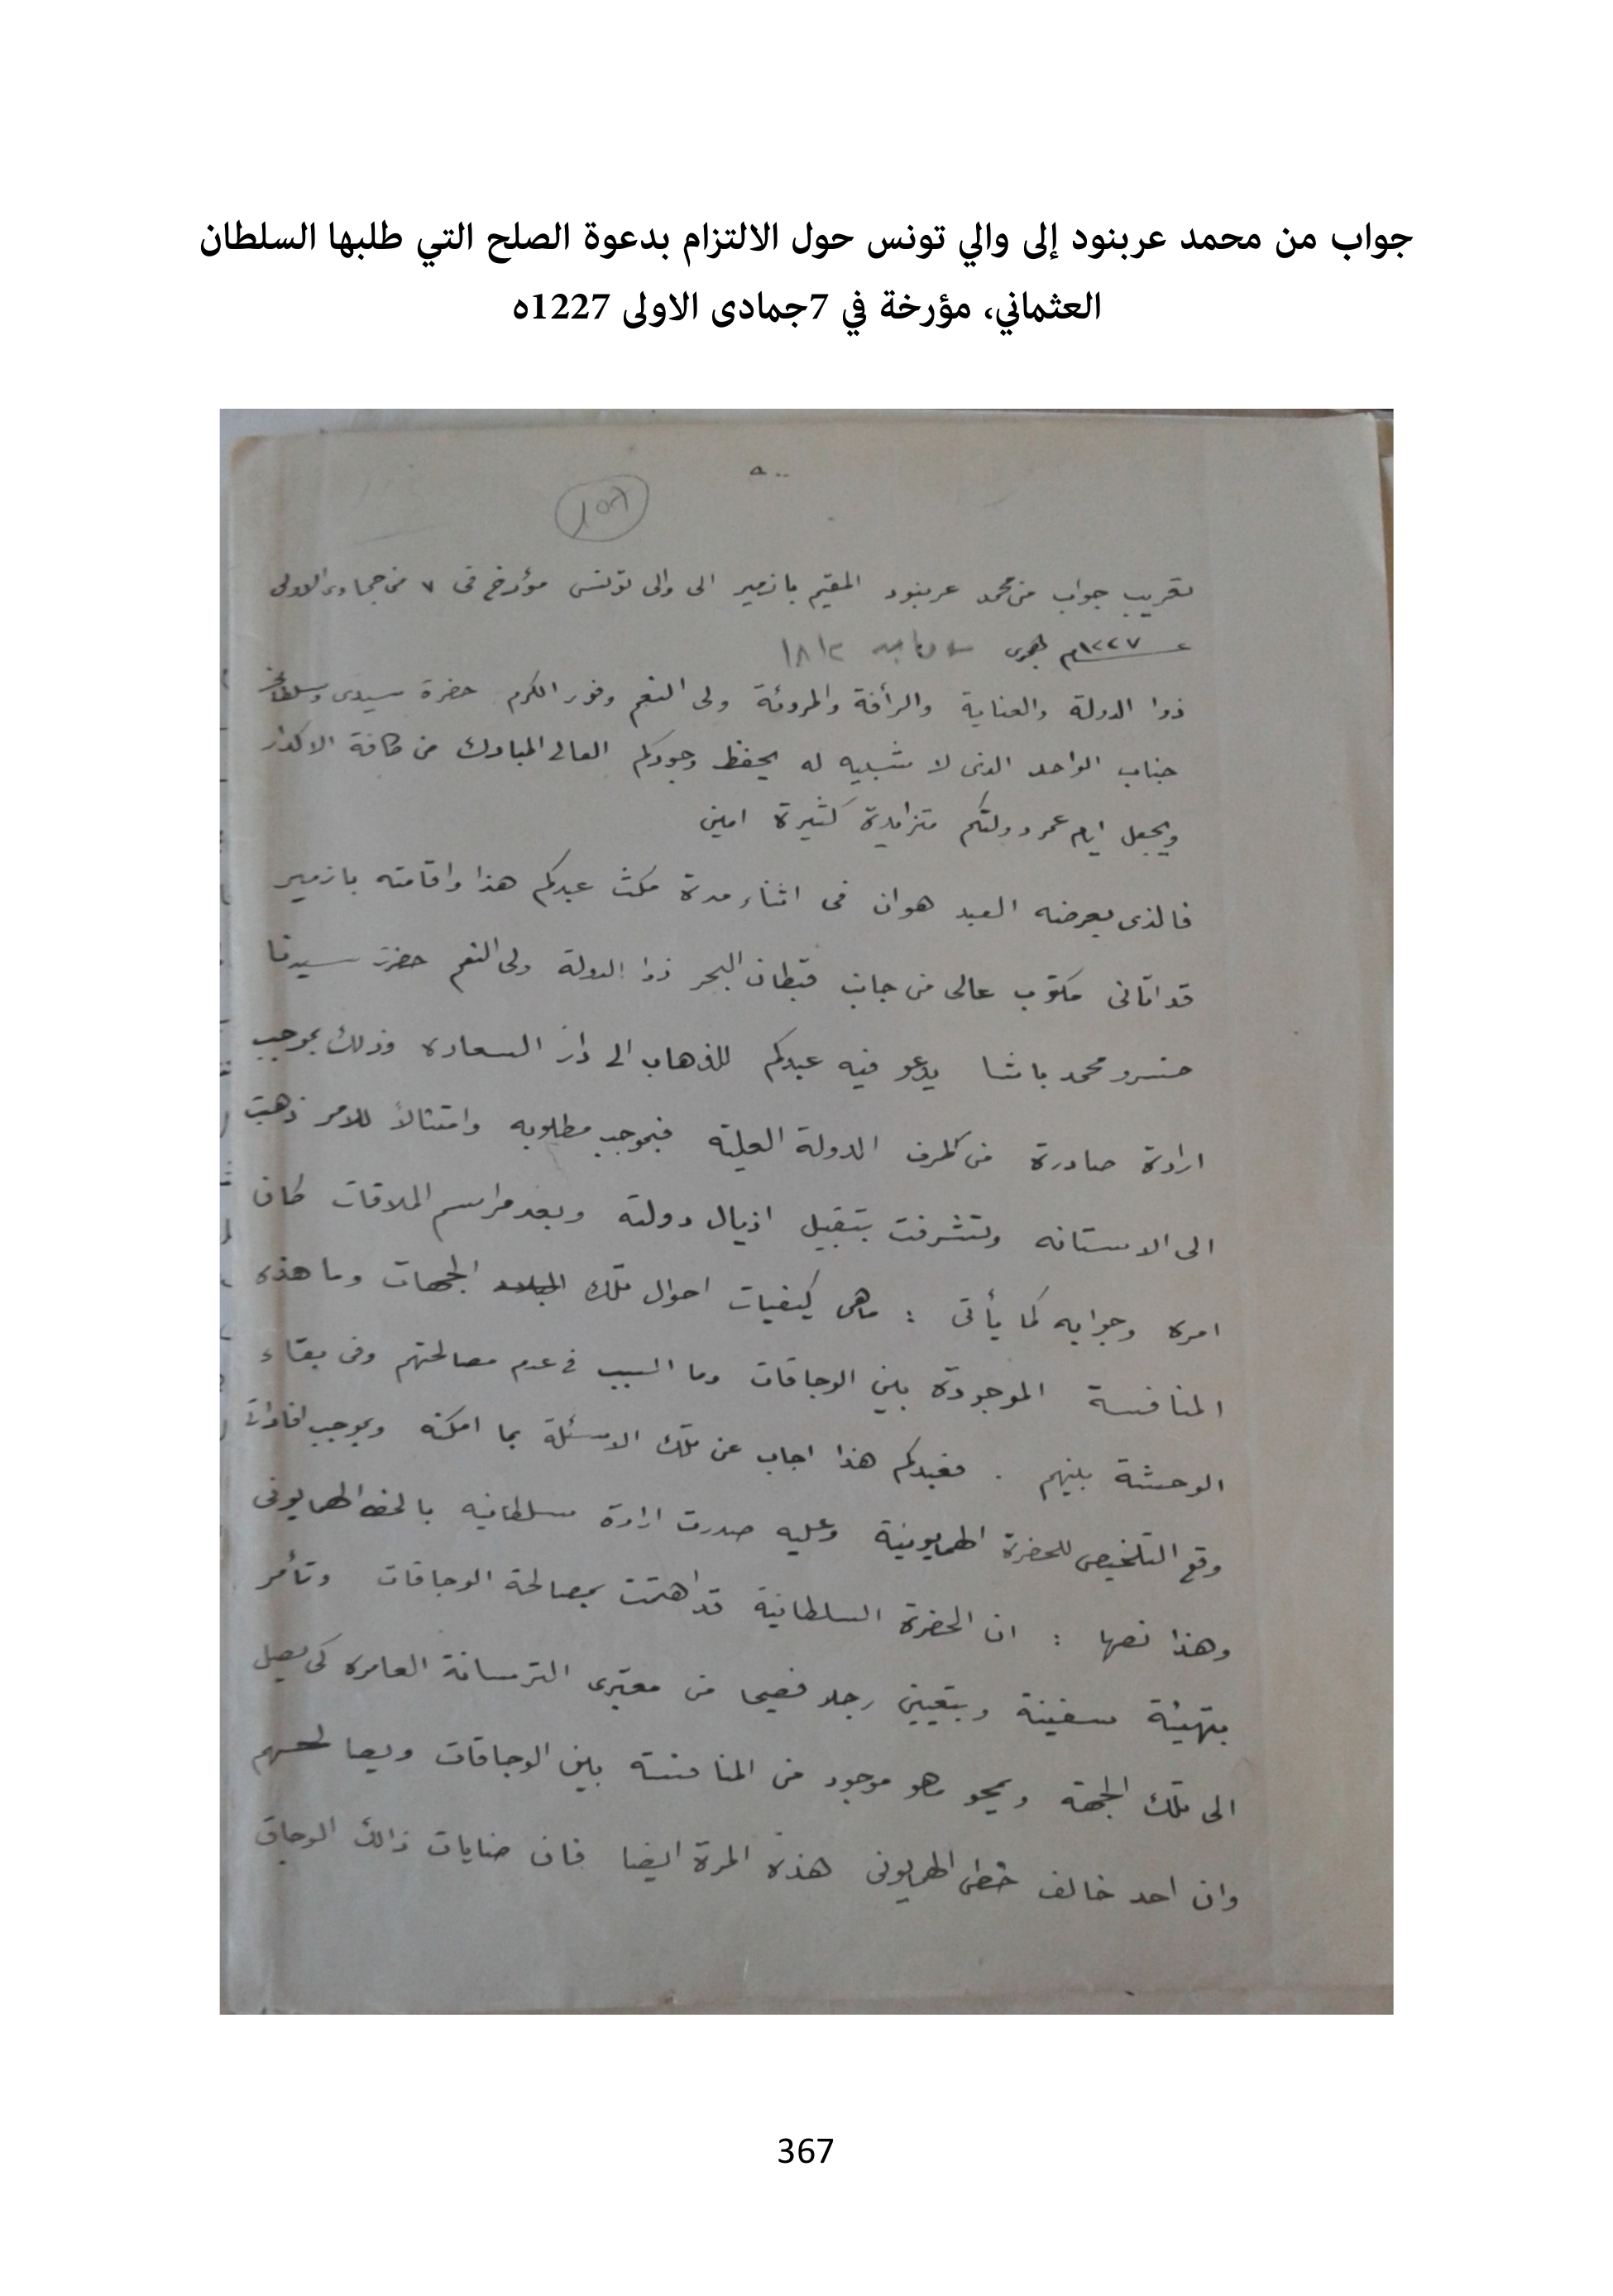 جواب من محمد عربنود إلى والي تونس حول الالتزام بدعوة الصلح التي طلبها السلطان
العثماني، مؤرخة في 7جمادى الاولى 1227ه
تعريب جواب من محمد عربنود المقيم بازمير الى والى تونس مؤرخ فى ٧ من جمادى الاولى
١٢٢٧ هجرى ١٨١٢
ذوا الدولة والعناية والرأفة والمروئة ولى النعم وفور الكرم حضرة سيدى وسلطانى
جناب الواحد الذى لا شبيه له يحفظ وجودكم العالى المبارك من كافة الاكدار
ويجعل ايام عمر دولتكم متزايدة كثيرة امين
فالذى يعرضه العبد هوان فى اثناء مدة مكث عبدكم هذا واقامته بازمير
قد اتانى مكتوب عالى من جانب قبطان البحر ذوا الدولة ولى النعم حضرت سيدنا
خسرو محمد باشا يدعو فيه عبدكم للذهاب الى دار السعاده وذلك بموجب
ارادة صادرة من طرف الدولة العلية فبموجب مطلوبه وامتثالاً للامر ذهبت
الى الاستانه وتشرفت بتقبيل اذيال دولته وبعد مراسم الملاقات كان
امره وجوابه كما يأتى : ماهى كيفيات احوال تلك الجهات وما هذه
المنافسة الموجودة بين الوجاقات وما السبب في عدم مصالحتهم وفى بقاء
الوحشة بينهم . فعبدكم هذا اجاب عن تلك الاسئلة بما امكنه وبموجب افاداتى
وقع التلخيص للحضرة الهمايونية وعليه صدرت ارادة سلطانيه بالخط الهمايونى
وهذا نصها : ان الحضرة السلطانية قد اهتمت بمصالحة الوجاقات وتأمر
بتهيئة سفينة وبتعيين رجلا فصيحا من معتبرى الترسانة العامره كى يصل
الى تلك الجهة ويمحو ماهو موجود من المنافسة بين الوجاقات ويصالحهم
وان احد خالف خطى الهمايونى هذه المرة ايضا فان ذالك الوجاق
367